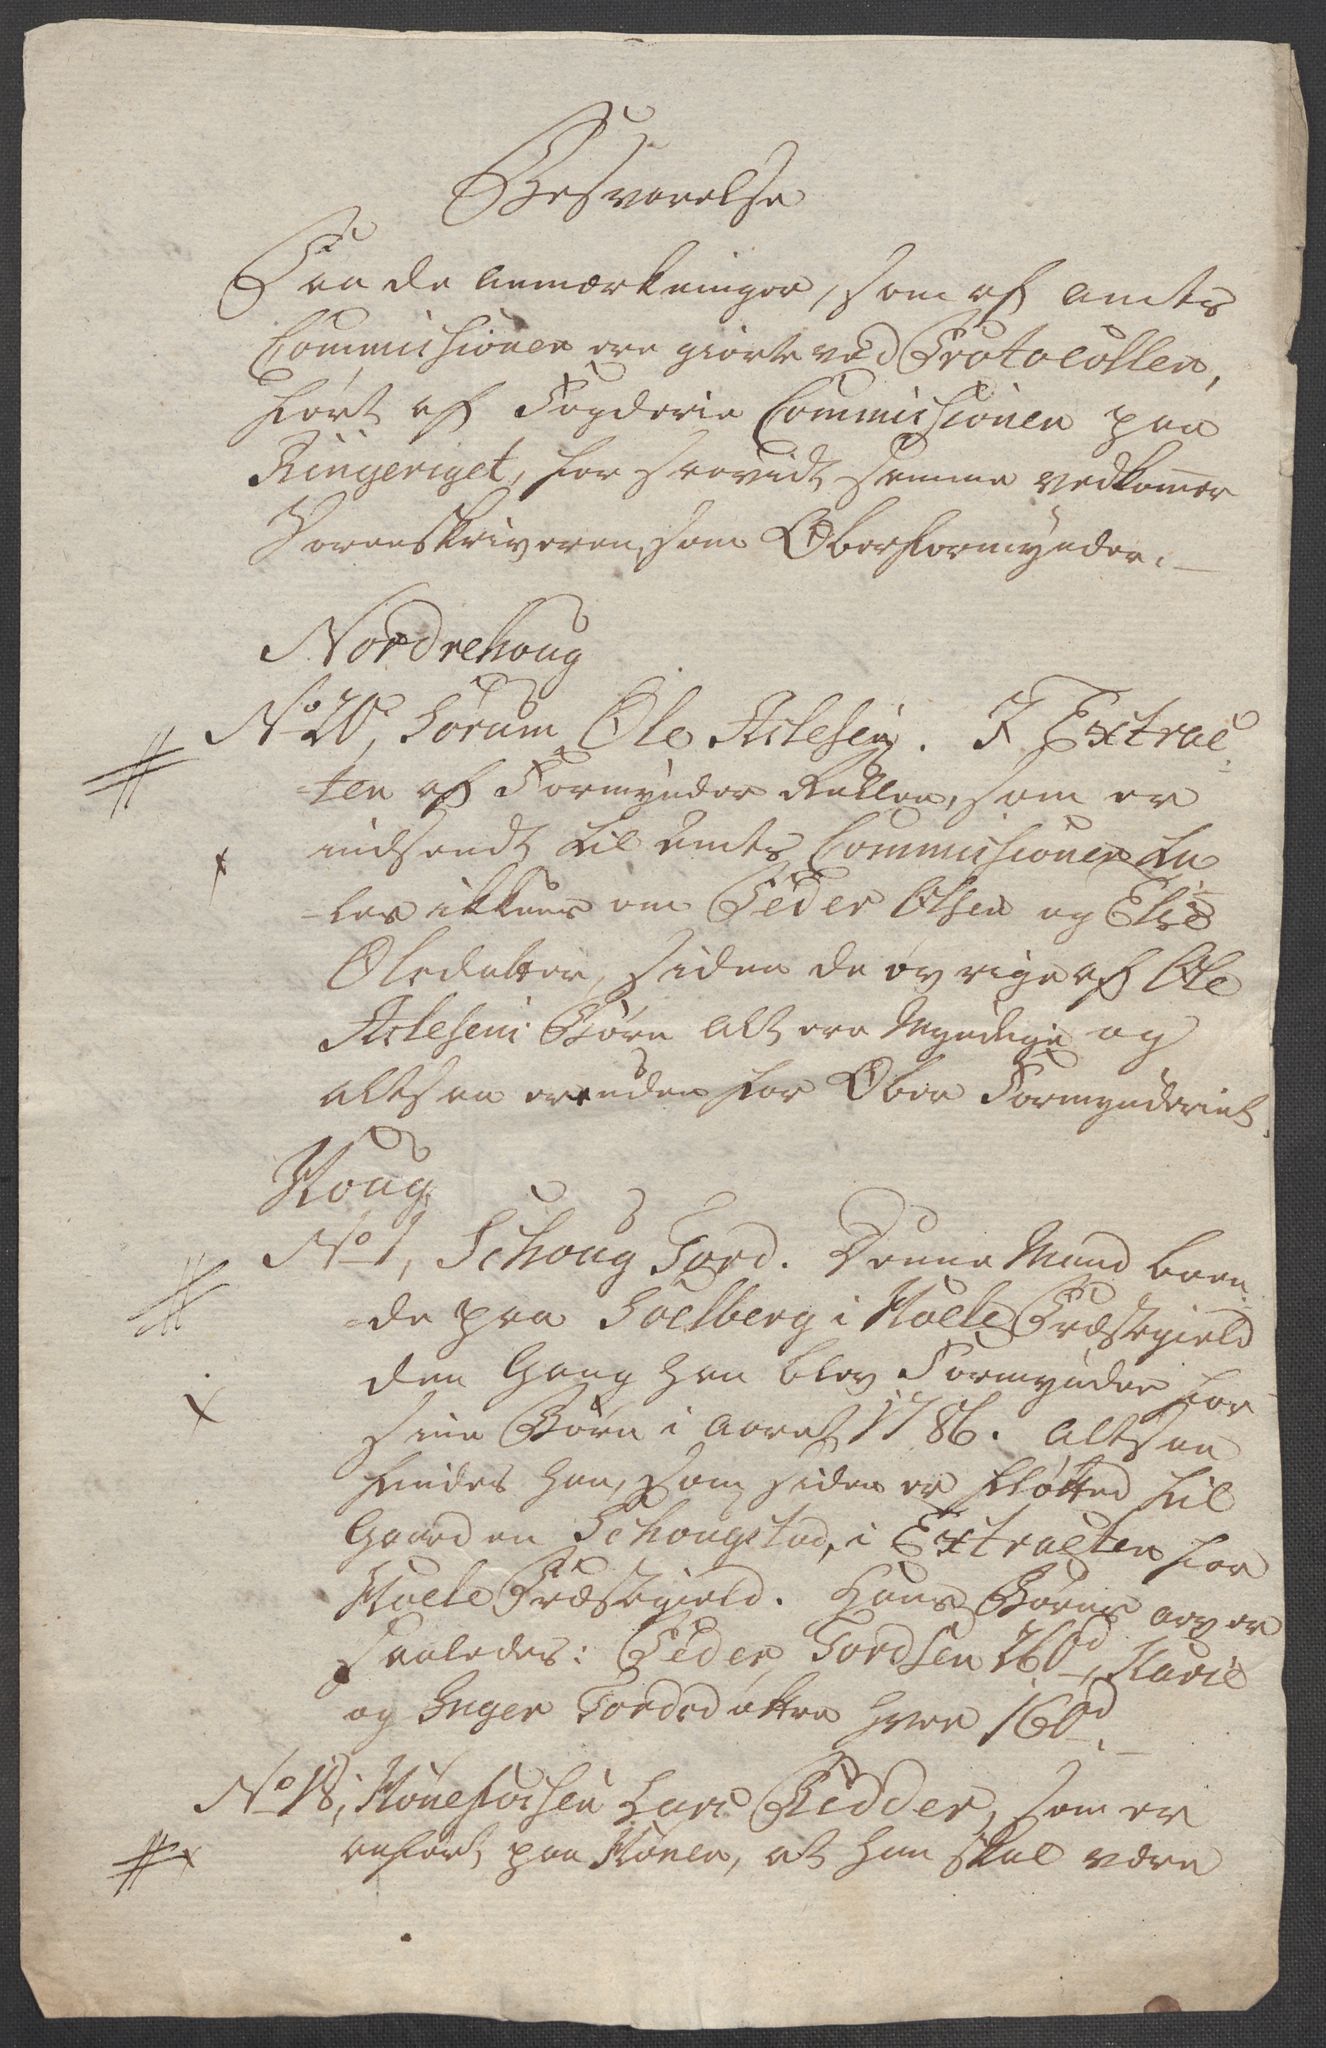 Besvarelse
Paa de anmærkninger, som af Amts
Commissionen ere giorte ved Protocollen,
ført af Fogderie Commissionen paa
Ringeriget, for saavidt samme vedkommer
Sorenskriveren, som Oberformynder. _
Nordrehoug
No 20, Sørum Ole Aslesen. I Extrac-
ten af Formynder Rullen, som er
indsendt til Amts Commissionen ta-
les ikkuns om Peder Olsen og Elie
Olsdatter, siden de øvrige af Ole
Aslesens Børn alt ere Myndige og
altsaa uden for Ober Formynderiet.
Houg
No 1, Schoug Tord. Denne Mand boe-
de paa Soelberg i Hoele Præstegield
den Gang han blev Formynder for
sine Børn i Aaret 1786. Altsaa
findes han, som siden er fløtted til
Gaarden Schougstad, i Extracten for
Hoele Præstegield. Hans Børns arv er
saaledes: Peder Tordsen 260 d, Marie
og Inger Tordsdøttre hver 160 d. _
No 18, Hønefossen Lars Bedder, som er
anført paa Hønen, at han skal være